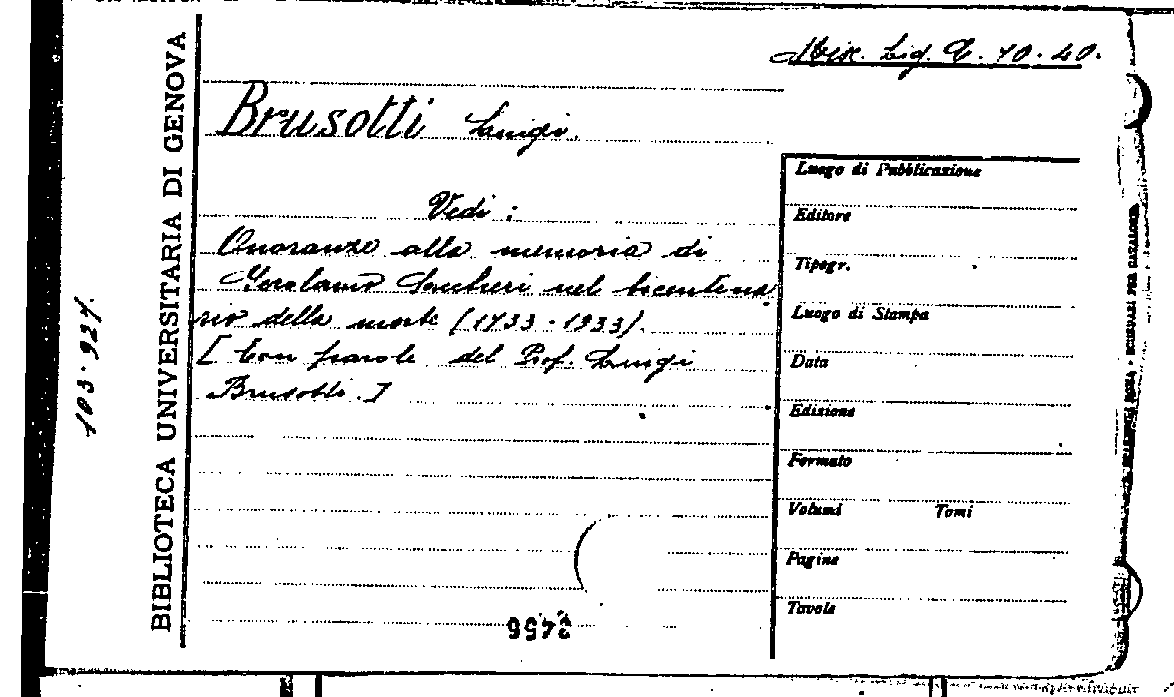 Misc. Lig. C. 10. 40.
Brusotti Luigi.
Vedi :
Onoranze alla memoria di
Gerolamo Saccheri nel bicentena
rio della morte (1733 - 1933).
[ Con parole del Prof. Luigi
Brusotti. ]
BIBLIOTECA UNIVERSITARIA DI GENOVA
103.927.
Luogo di Pubblicazione
Editore
Tipogr.
Luogo di Stampa
Data
Edizione
Formato
Volumi Tomi
Pagine
Tavole